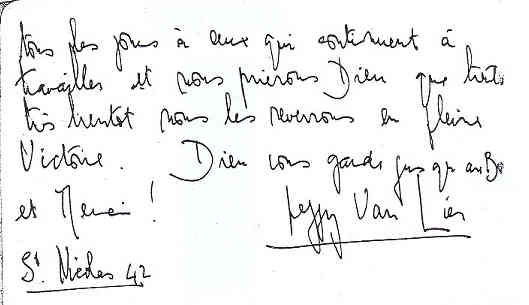 tous les jours à ceux qui continuent à
travailler et nous prierons Dieu que
très bientot nous les reverrons en pleine
Victoire. Dieu vous garde jusque au Bo
et Merci !
Peggy Van Lier
St. Nicolas 42